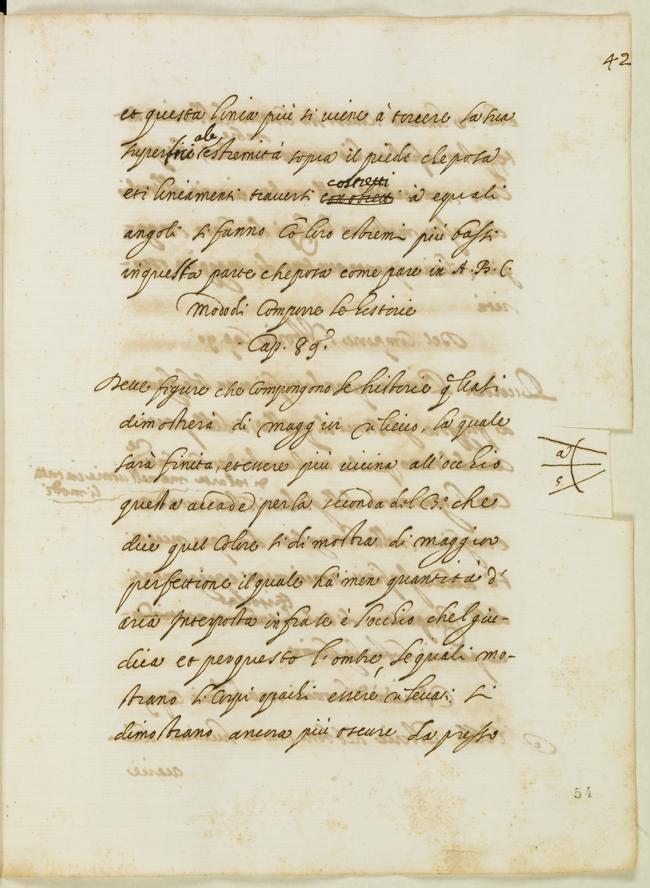 42
et questa linea più si viene à torcere la sua
superfitie ale estremità sopra il piede che posa
et i lineamenti traversi costretti à equali
angoli si fanno cō loro estremi più bassi
in questa parte che posa come pare in A. B. C.
Modo di Comporre le historie
Cap. 89.
Delle figure che Compongono le historie q̃lla si
dimosterà di maggior rilievo, la quale
sarà finita, et essere più vicina all'occhio
questa accade per la seconda del B.º che
dice quel Colore si dimostra di maggior
perfettione il quale ha men quantità d'
aria Interposta infra se è l'occhio che 'l giu-
dica et per questo l'ombre le quali mo-
strano li Corpi opachi essere rilevati si
dimostrano ancora più oscure da presso
a
s
54